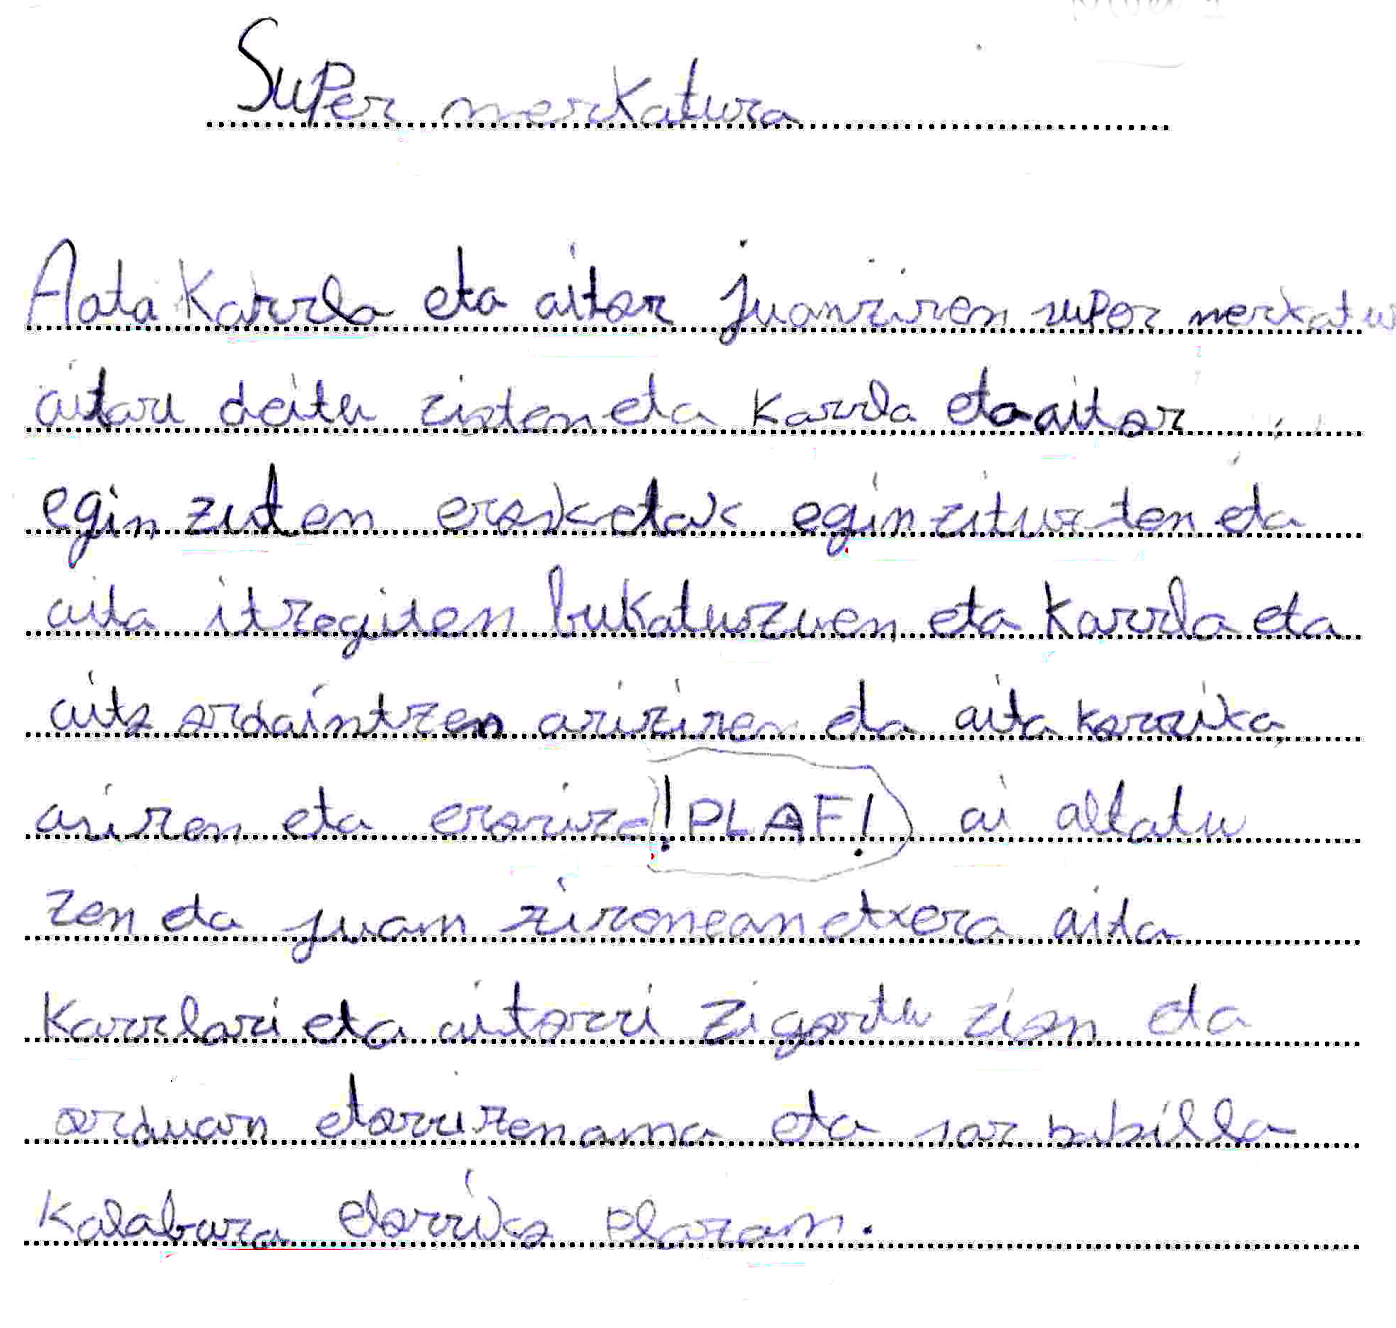 Super merkatura
Aata Karrla eta aitor juanziren super merkatu
aitari deitu zioten eta Karrla eta aitor
egin zuten erosketak eginzituzten eta
aita itzegiten bukatuzuen eta Karrla eta
aita ordaintzen ariziren eta aita korrika
ariren eta eroriza !PLAF! ai altatu
zen eta juan zirenean etxera aita
Karrlari eta aitorri zigortu zion eta
orduan etorrizenama eta sorbabilla
Kalabaza etorriko plazan.